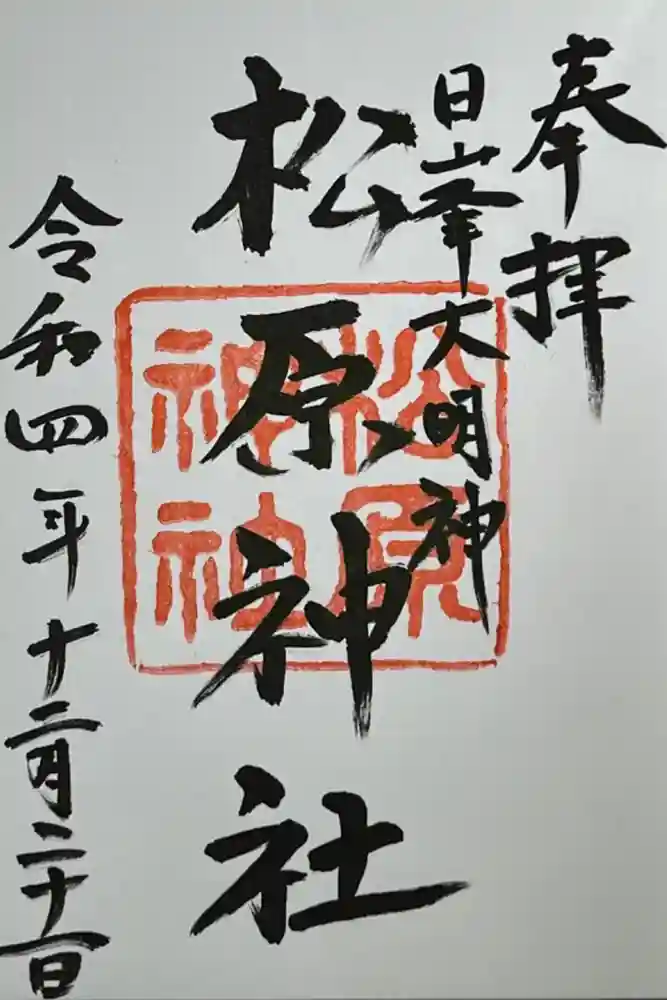 奉拝
日峯大明神
松原神社
令和四年十二月二十一日
松原
神社